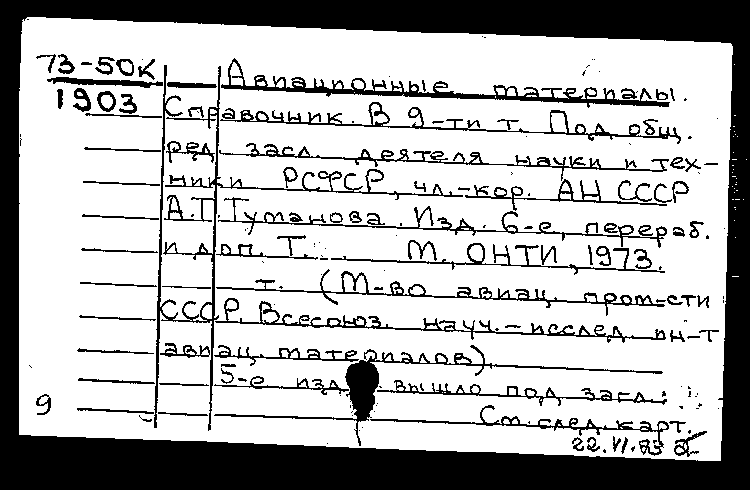 73-50К Авиационные материалы.
1903 Справочник. В 9-ти т. Под общ.
ред. засл. деятеля науки и тех-
ники РСФСР, чл.-кор. АН СССР
А.Т. Туманова. Изд. 6-е, перераб.
и доп. Т. М., ОНТИ, 1973.
т. (М-во авиац. пром-сти
СССР. Всесоюз. науч.-исслед. ин-т
авиац. материалов).
5-е изд. вышло под загл.:
9 См. след. карт.
22.VI.73